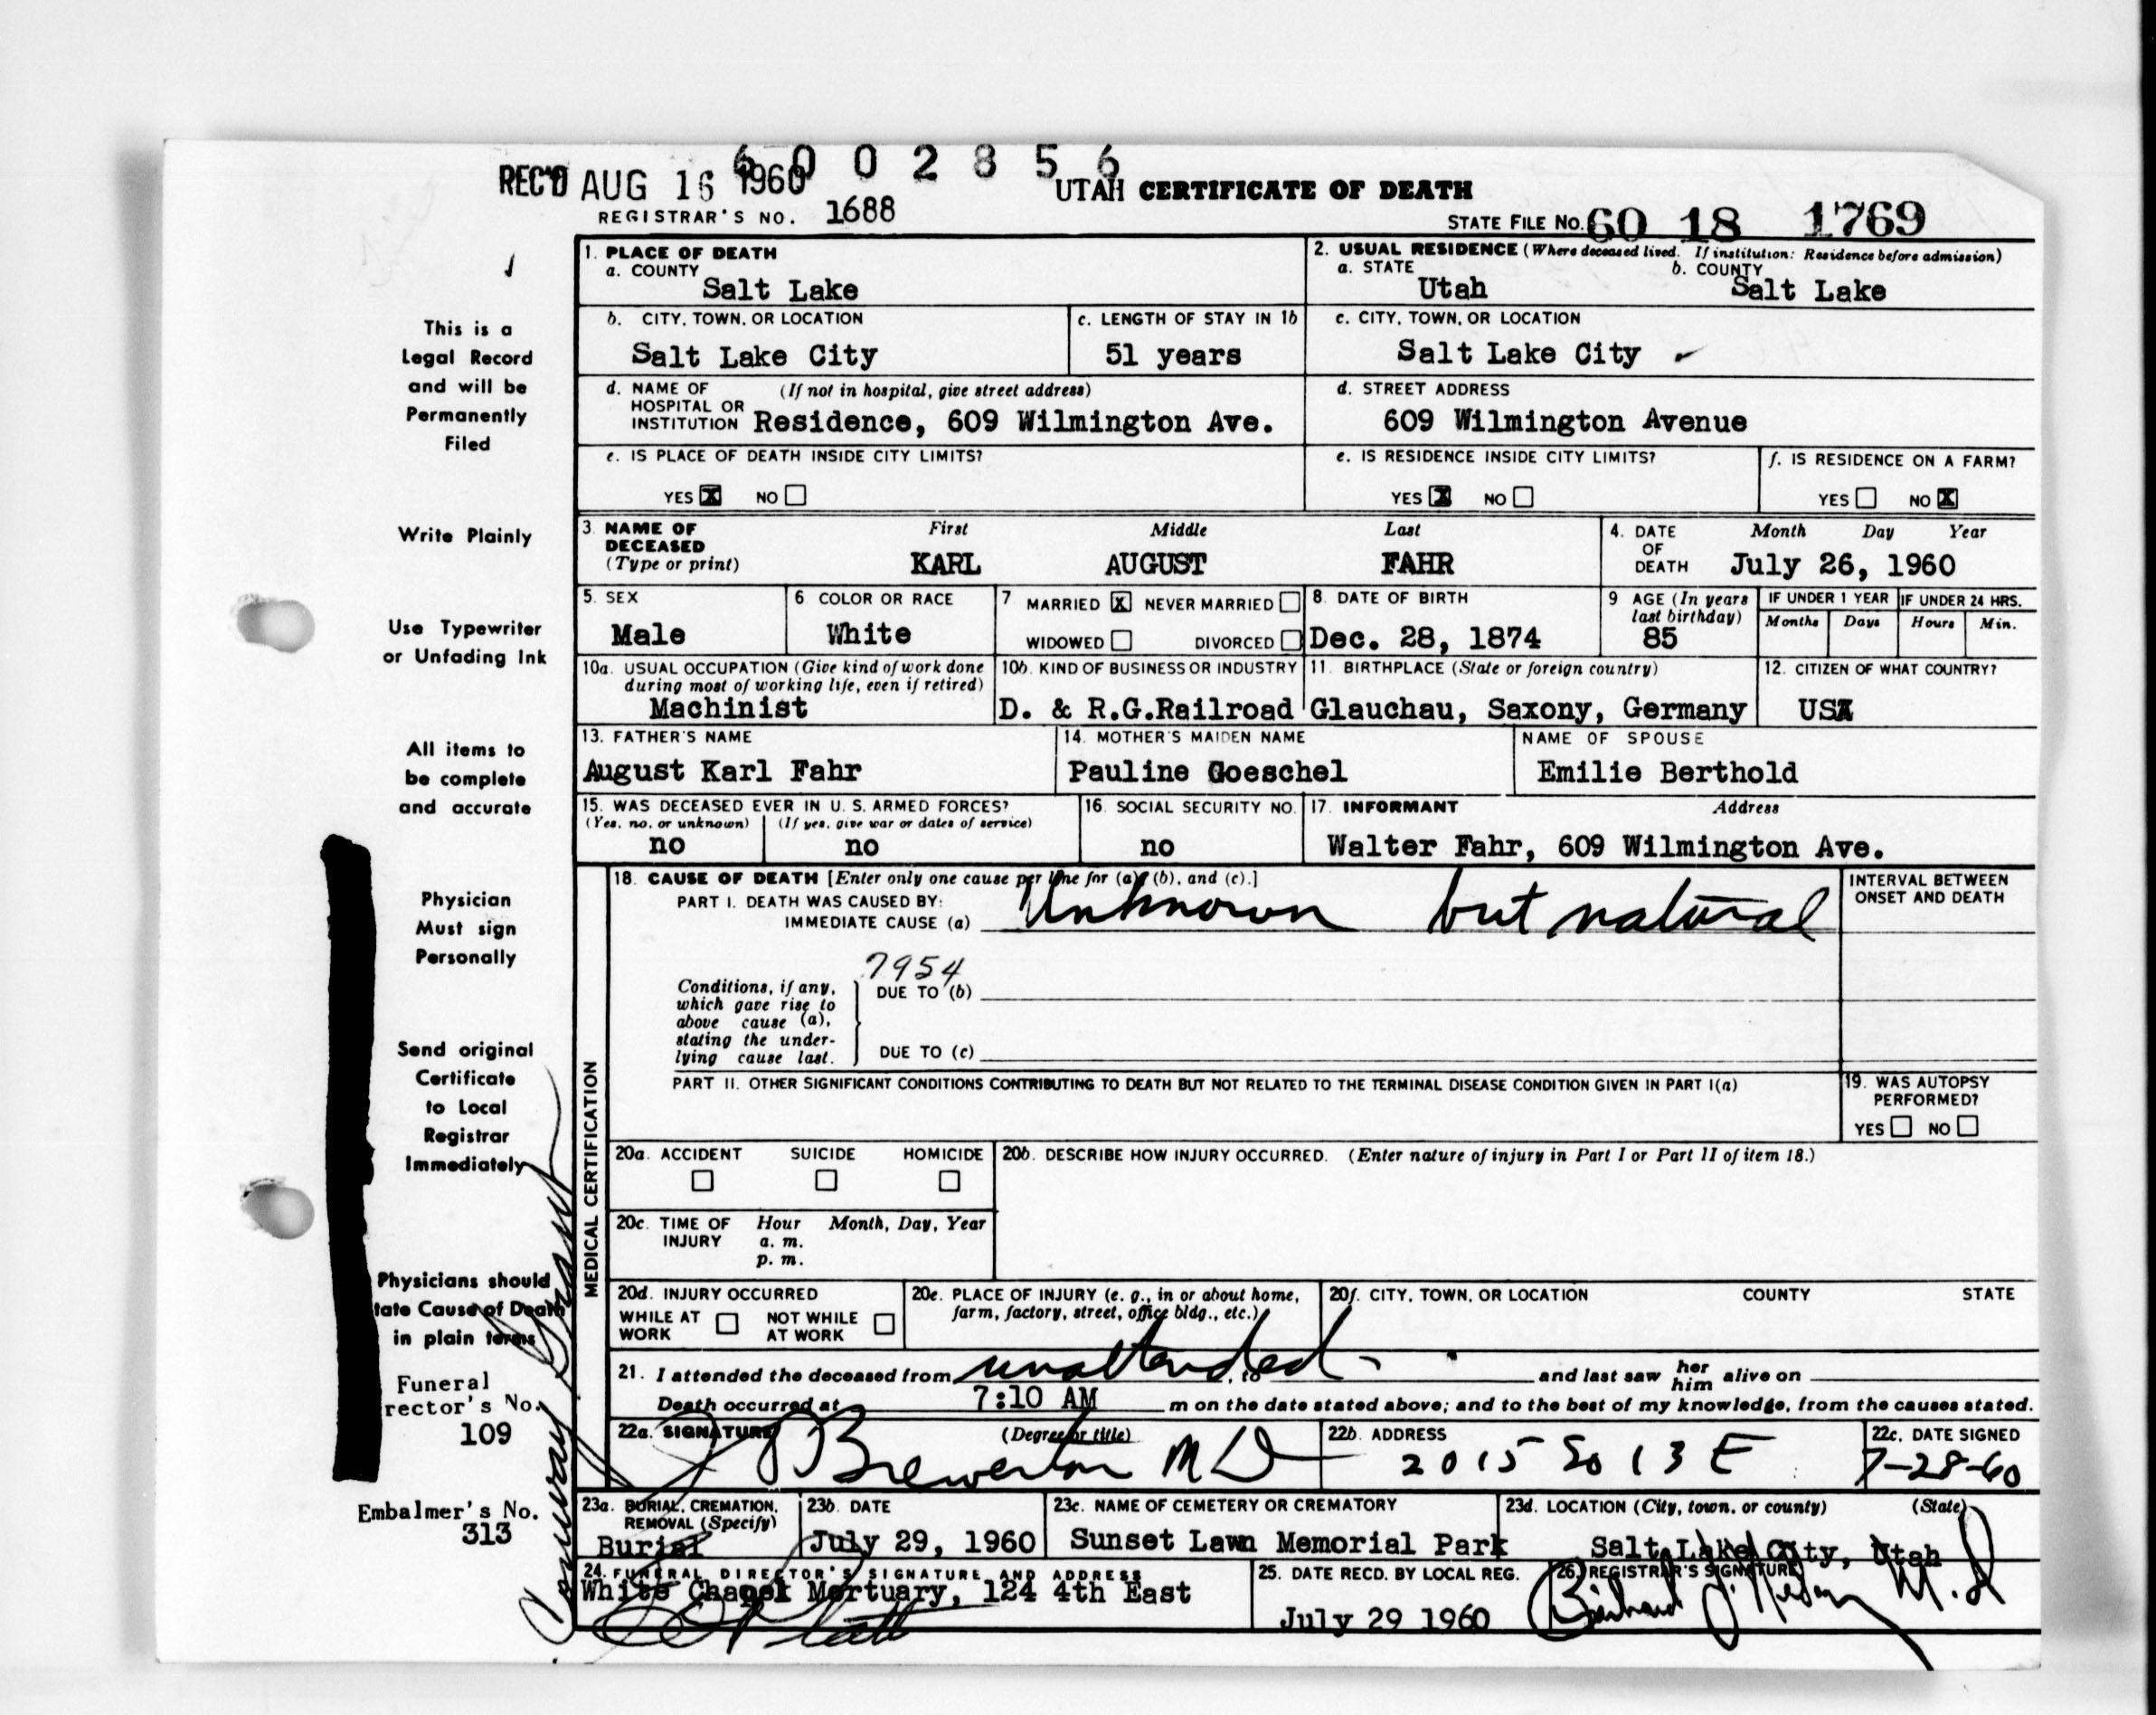 6002856
REC'D AUG 16 1960
UTAH CERTIFICATE OF DEATH
REGISTRAR'S NO. 1688
STATE FILE NO. 60 18 1769
This is a
Legal Record
and will be
Permanently
Filed
Write Plainly
Use Typewriter
or Unfading Ink
All items to
be complete
and accurate
Physician
Must sign
Personally
Send original
Certificate
to Local
Registrar
Immediately
Physicians should
tate Cause of Death
in plain terms
Funeral
rector's No.
109
Embalmer's No.
313
1. PLACE OF DEATH
a. COUNTY
Salt Lake
2. USUAL RESIDENCE (Where deceased lived. If institution: Residence before admission)
a. STATE
Utah
b. COUNTY
Salt Lake
b. CITY, TOWN, OR LOCATION
Salt Lake City
c. LENGTH OF STAY IN 1b
51 years
c. CITY, TOWN, OR LOCATION
Salt Lake City
d. NAME OF HOSPITAL OR INSTITUTION (If not in hospital, give street address)
Residence, 609 Wilmington Ave.
d. STREET ADDRESS
609 Wilmington Avenue
e. IS PLACE OF DEATH INSIDE CITY LIMITS?
YES X NO
e. IS RESIDENCE INSIDE CITY LIMITS?
YES X NO
f. IS RESIDENCE ON A FARM?
YES NO X
3. NAME OF DECEASED (Type or print)
First Middle Last
KARL AUGUST FAHR
4. DATE OF DEATH
Month Day Year
July 26, 1960
5. SEX
Male
6. COLOR OR RACE
White
7. MARRIED X NEVER MARRIED
WIDOWED DIVORCED
8. DATE OF BIRTH
Dec. 28, 1874
9. AGE (In years last birthday)
85
IF UNDER 1 YEAR
Months Days
IF UNDER 24 HRS.
Hours Min.
10a. USUAL OCCUPATION (Give kind of work done during most of working life, even if retired)
Machinist
10b. KIND OF BUSINESS OR INDUSTRY
D. & R.G.Railroad
11. BIRTHPLACE (State or foreign country)
Glauchau, Saxony, Germany
12. CITIZEN OF WHAT COUNTRY?
USA
13. FATHER'S NAME
August Karl Fahr
14. MOTHER'S MAIDEN NAME
Pauline Goeschel
NAME OF SPOUSE
Emilie Berthold
15. WAS DECEASED EVER IN U.S. ARMED FORCES?
(Yes, no, or unknown) (If yes, give war or dates of service)
no no
16. SOCIAL SECURITY NO.
no
17. INFORMANT Address
Walter Fahr, 609 Wilmington Ave.
MEDICAL CERTIFICATION
18. CAUSE OF DEATH [Enter only one cause per line for (a), (b), and (c).]
PART I. DEATH WAS CAUSED BY:
IMMEDIATE CAUSE (a) Unknown but natural
INTERVAL BETWEEN
ONSET AND DEATH
7954
Conditions, if any,
which gave rise to
above cause (a),
stating the under-
lying cause last.
DUE TO (b)
DUE TO (c)
PART II. OTHER SIGNIFICANT CONDITIONS CONTRIBUTING TO DEATH BUT NOT RELATED TO THE TERMINAL DISEASE CONDITION GIVEN IN PART I(a)
19. WAS AUTOPSY PERFORMED?
YES NO
20a. ACCIDENT SUICIDE HOMICIDE
20b. DESCRIBE HOW INJURY OCCURRED. (Enter nature of injury in Part I or Part II of item 18.)
20c. TIME OF INJURY
Hour Month, Day, Year
a. m.
p. m.
20d. INJURY OCCURRED
WHILE AT WORK NOT WHILE AT WORK
20e. PLACE OF INJURY (e. g., in or about home, farm, factory, street, office bldg., etc.)
20f. CITY, TOWN, OR LOCATION COUNTY STATE
21. I attended the deceased from unattended, to and last saw her him alive on
Death occurred at 7:10 AM m on the date stated above; and to the best of my knowledge, from the causes stated.
22a. SIGNATURE (Degree or title)
Brewerton MD
22b. ADDRESS
2015 So 13 E
22c. DATE SIGNED
7-28-60
23a. BURIAL, CREMATION, REMOVAL (Specify)
Burial
23b. DATE
July 29, 1960
23c. NAME OF CEMETERY OR CREMATORY
Sunset Lawn Memorial Park
23d. LOCATION (City, town, or county) (State)
Salt Lake City, Utah
24. FUNERAL DIRECTOR'S SIGNATURE AND ADDRESS
White Chapel Mortuary, 124 4th East
25. DATE RECD. BY LOCAL REG.
July 29 1960
26. REGISTRAR'S SIGNATURE
M.D